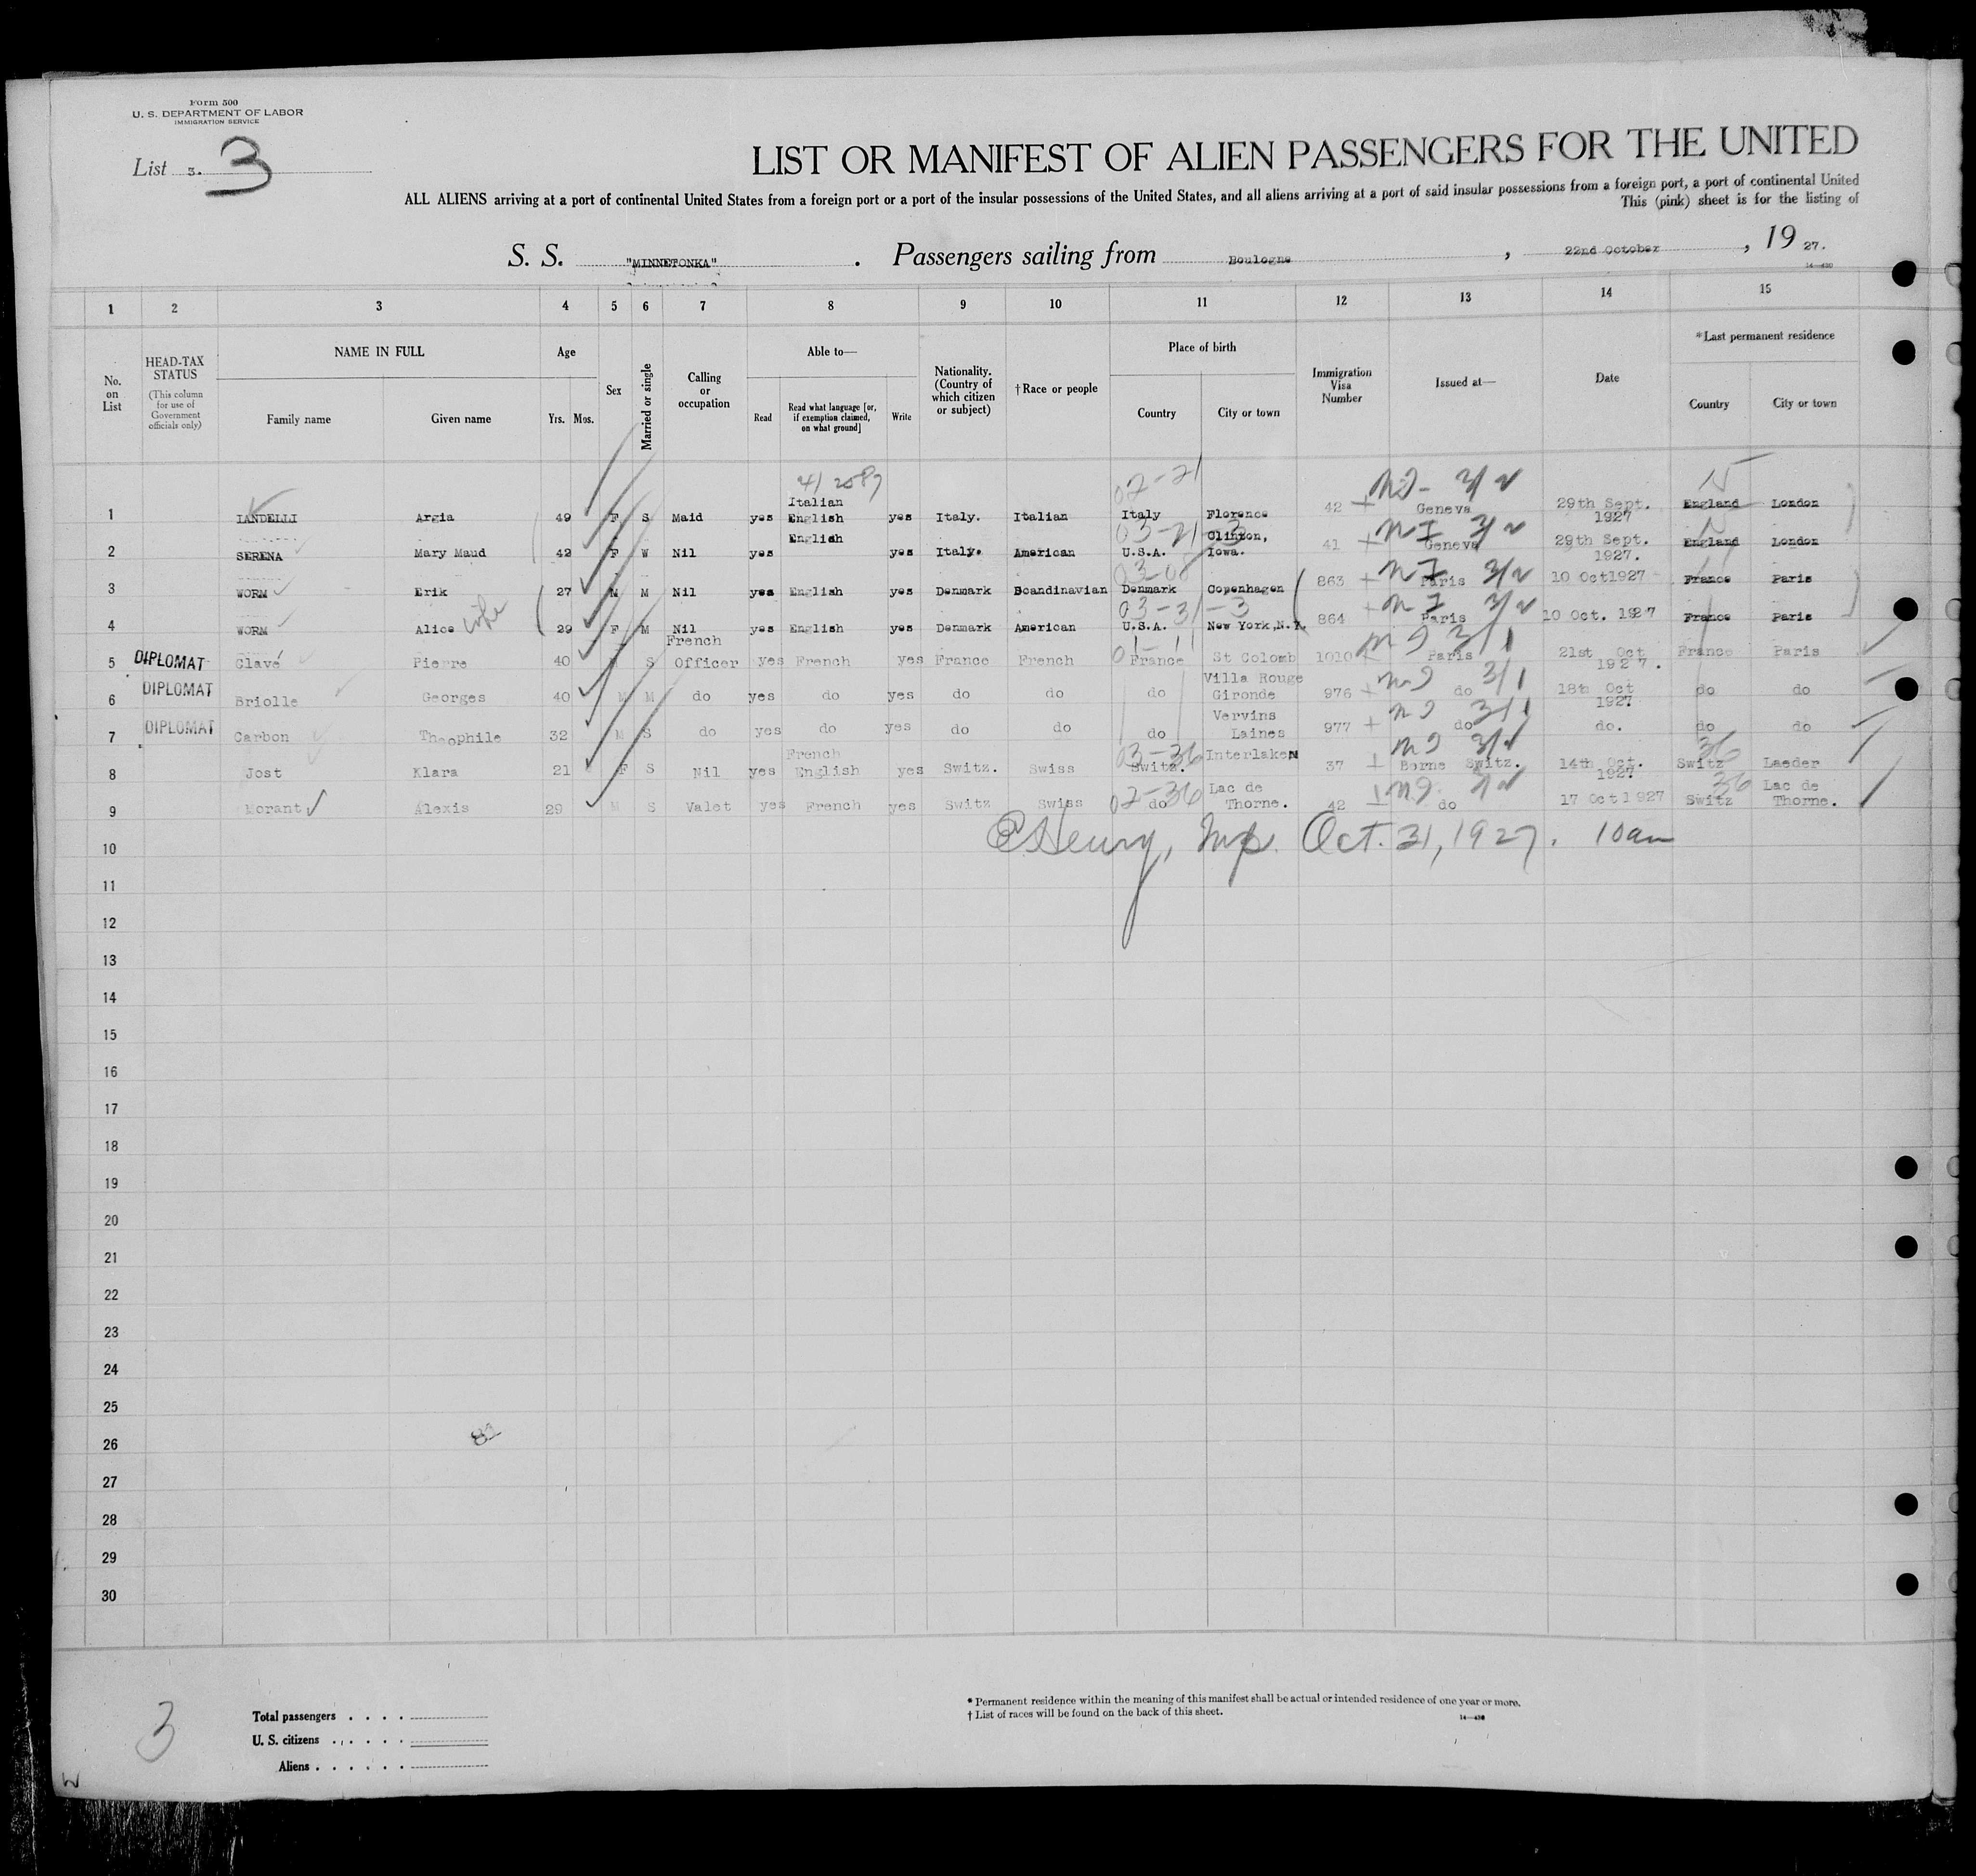 Form 500
U. S. DEPARTMENT OF LABOR
IMMIGRATION SERVICE
List 3. 3
LIST OR MANIFEST OF ALIEN PASSENGERS FOR THE UNITED
ALL ALIENS arriving at a port of continental United States from a foreign port or a port of the insular possessions of the United States, and all aliens arriving at a port of said insular possessions from a foreign port, a port of continental United
This (pink) sheet is for the listing of
S. S. "MINNETONKA" . Passengers sailing from Boulogne , 22nd October , 19 27.
1 2 3 4 5 6 7 8 9 10 11 12 13 14 15
No. on List
HEAD-TAX STATUS
(This column for use of Government officials only)
NAME IN FULL
Family name Given name
Age
Yrs. Mos.
Sex
Married or single
Calling or occupation
Able to—
Read
Read what language [or, if exemption claimed, on what ground]
Write
Nationality. (Country of which citizen or subject)
† Race or people
Place of birth
Country City or town
Immigration Visa Number
Issued at—
Date
* Last permanent residence
Country City or town
1 IANDELLI Argia 49 F S Maid yes Italian English yes Italy. Italian 02-21 Italy Florence 42 Geneva 29th Sept. 1927 England London
2 SERENA Mary Maud 42 F W Nil yes English yes Italy. American U.S.A. Clinton, Iowa. 41 Geneva 29th Sept. 1927. England London
3 WORM Erik 27 M M Nil yes English yes Denmark Scandinavian Denmark Copenhagen 863 Paris 10 Oct1927 France Paris
4 WORM Alice wife 29 F M Nil yes English yes Denmark American 03-31-3 U.S.A. New York,N.Y. 864 Paris 10 Oct. 1927 France Paris
5 DIPLOMAT Clavé Pierre 40 M S French Officer yes French yes France French France St Colomb 1010 Paris 21st Oct 1927. France Paris
6 DIPLOMAT Briolle Georges 40 M M do yes do yes do do do Villa Rouge Gironde 976 do 18th Oct 1927 do do
7 DIPLOMAT Carbon Theophile 32 M S do yes do yes do do do Vervins Laines 977 do do. do do
8 Jost Klara 21 F S Nil yes French English yes Switz. Swiss 03-36 Switz. Interlaken 37 Berne Switz. 14th Oct. 1927 36 Switz Laeder
9 Morant Alexis 29 M S Valet yes French yes Switz Swiss 02-36 do Lac de Thorne. 42 do 17 Oct1927 36 Switz Lac de Thorne.
10 Henry, Insp. Oct. 31, 1927. 10am
11
12
13
14
15
16
17
18
19
20
21
22
23
24
25
26
27
28
29
30
3
Total passengers
U. S. citizens
Aliens
* Permanent residence within the meaning of this manifest shall be actual or intended residence of one year or more.
† List of races will be found on the back of this sheet.
W